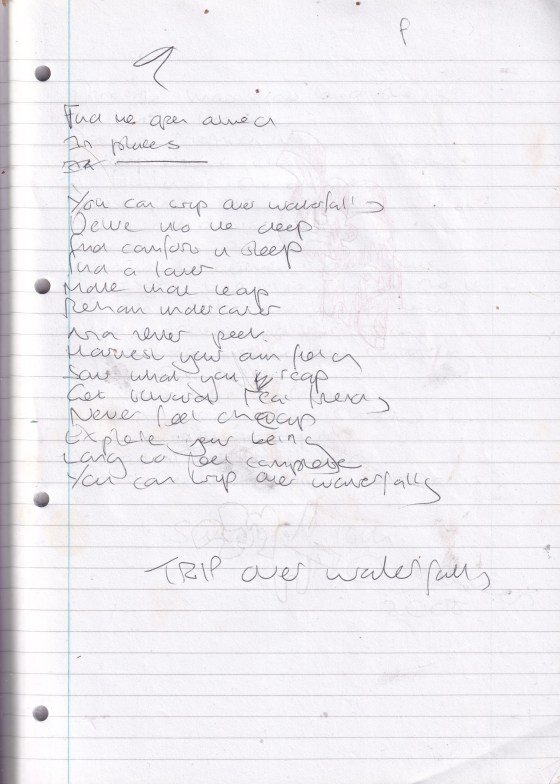 Find me open armed
In places
You can trip over waterfalls
Delve into the deep
Find comfort in sleep
Find a lover
Make that leap
Remain undercover
And never peek
Harvest your own field
Sow what you reap
Get
Never feel cheap
Explore your being
Long to feel complete
You can trip over waterfalls
TRIP over waterfalls